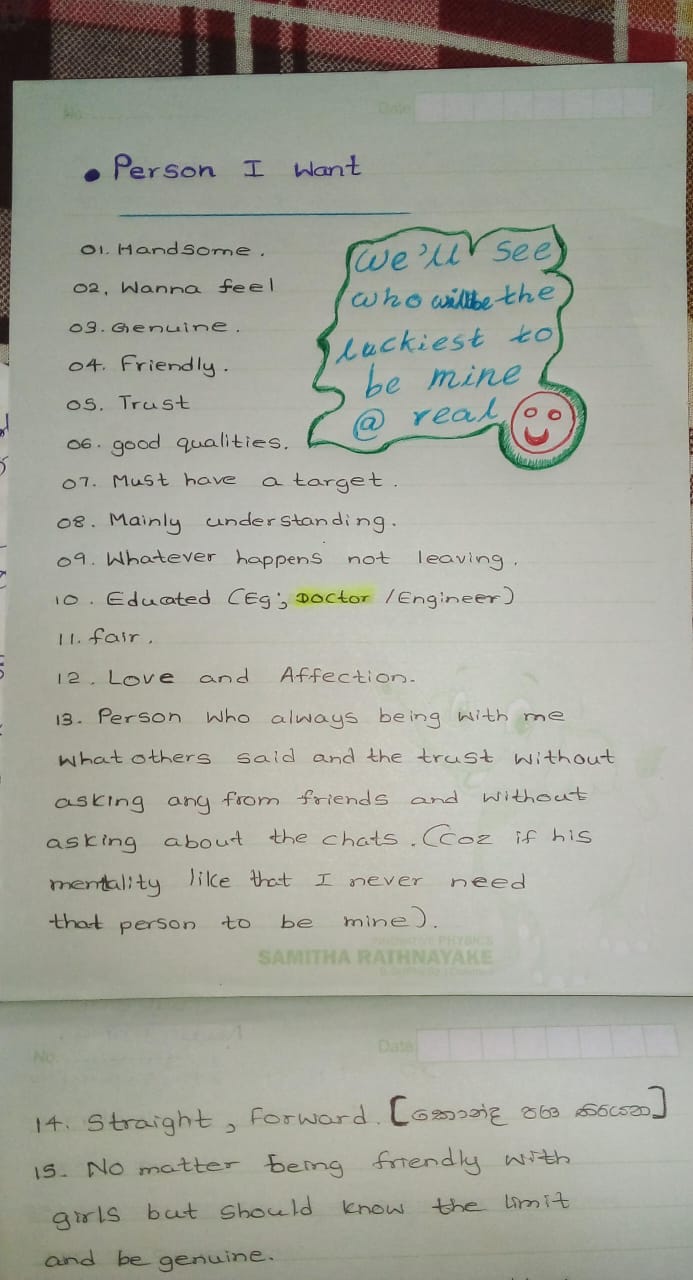 No.
Date
• Person I Want
01. Handsome.
02, Wanna feel
03. Genuine.
04. Friendly.
05. Trust
06. good qualities.
we'll see
who will be the
luckiest to
be mine
@ real
07. Must have a target.
08. Mainly understanding.
09. Whatever happens not leaving.
10. Educated (Eg; Doctor /Engineer)
11. fair.
12. Love and Affection.
13. Person who always being with me
what others said and the trust without
asking any from friends and without
asking about the chats. (Coz if his
mentality like that I never need
that person to be mine).
PHYSICS
SAMITHA RATHNAYAKE
No.
Date
14. Straight, Forward. [කොන්ද පණ තියෙන]
15. No matter being friendly with
girls but should know the limit
and be genuine.